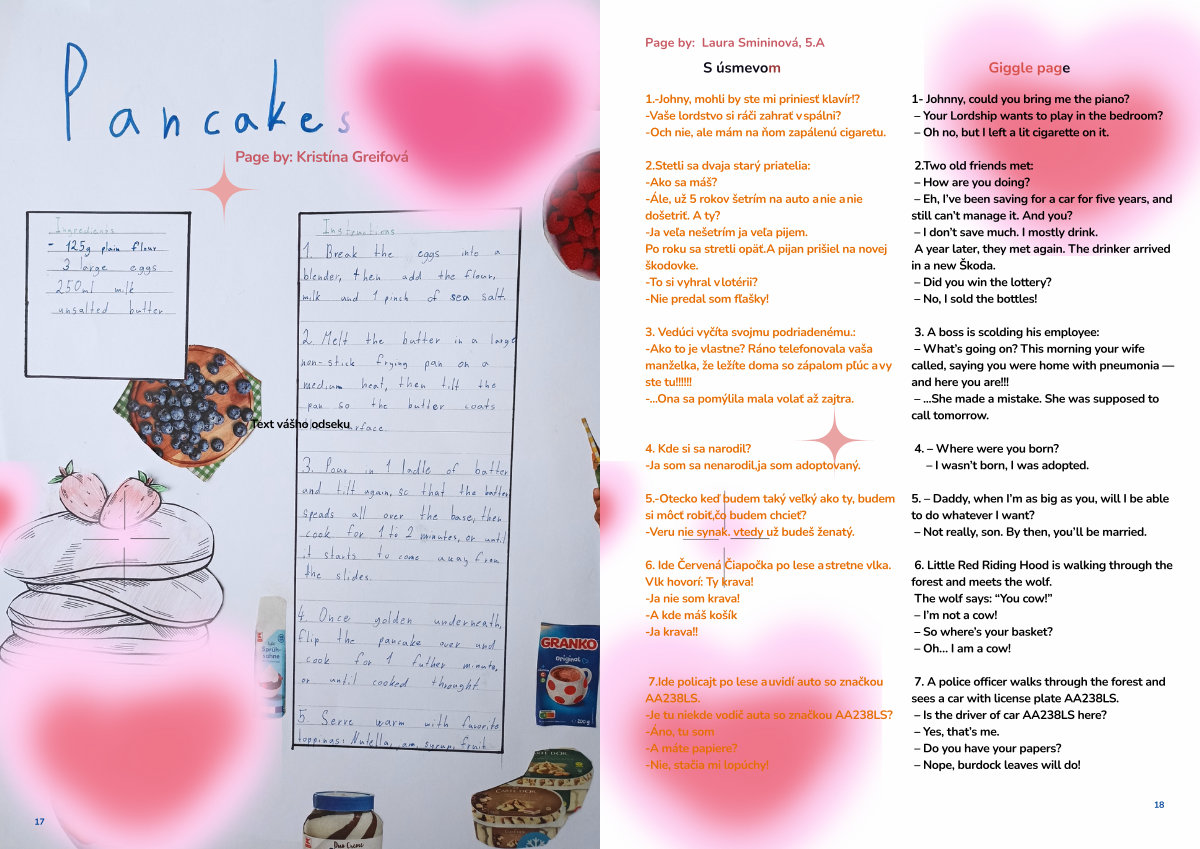 Pancakes
Page by: Kristína Greifová
Ingredients
- 125g plain flour
3 large eggs
250ml milk
unsalted butter
Text vášho odseku
Instructions
1. Break the eggs into a
blender, then add the flour,
milk and 1 pinch of sea salt.
2. Melt the butter in a large
non-stick frying pan on a
medium heat, then tilt the
pan so the butter coats
surface.
3. Pour in 1 ladle of batter
and tilt again, so that the batter
speads all over the base, then
cook for 1 to 2 minutes, or until
it starts to come away from
the slides.
4. Once golden underneath,
flip the pancake over and
cook for 1 futher minute,
or until cooked throught.
5. Serve warm with favorite
toppings: Nutella, jam, syrup, fruit
GRANKO
Original
200 g
Duo Creme
17
Page by: Laura Smininová, 5.A
S úsmevom
1.-Johny, mohli by ste mi priniesť klavír!?
-Vaše lordstvo si ráči zahrať v spálni?
-Och nie, ale mám na ňom zapálenú cigaretu.
2.Stetli sa dvaja starý priatelia:
-Ako sa máš?
-Ále, už 5 rokov šetrím na auto a nie a nie
došetriť. A ty?
-Ja veľa nešetrím ja veľa pijem.
Po roku sa stretli opäť.A pijan prišiel na novej
škodovke.
-To si vyhral v lotérii?
-Nie predal som fľašky!
3. Vedúci vyčíta svojmu podriadenému.:
-Ako to je vlastne? Ráno telefonovala vaša
manželka, že ležíte doma so zápalom pľúc a vy
ste tu!!!!!!
-...Ona sa pomýlila mala volať až zajtra.
4. Kde si sa narodil?
-Ja som sa nenarodil,ja som adoptovaný.
5.-Otecko keď budem taký veľký ako ty, budem
si môcť robiť,čo budem chcieť?
-Veru nie synak. vtedy už budeš ženatý.
6. Ide Červená Čiapočka po lese a stretne vlka.
Vlk hovorí: Ty krava!
-Ja nie som krava!
-A kde máš košík
-Ja krava!!
7.Ide policajt po lese a uvidí auto so značkou
AA238LS.
-Je tu niekde vodič auta so značkou AA238LS?
-Áno, tu som
-A máte papiere?
-Nie, stačia mi lopúchy!
Giggle page
1- Johnny, could you bring me the piano?
– Your Lordship wants to play in the bedroom?
– Oh no, but I left a lit cigarette on it.
2.Two old friends met:
– How are you doing?
– Eh, I've been saving for a car for five years, and
still can't manage it. And you?
– I don't save much. I mostly drink.
A year later, they met again. The drinker arrived
in a new Škoda.
– Did you win the lottery?
– No, I sold the bottles!
3. A boss is scolding his employee:
– What's going on? This morning your wife
called, saying you were home with pneumonia —
and here you are!!!
– ...She made a mistake. She was supposed to
call tomorrow.
4. – Where were you born?
– I wasn't born, I was adopted.
5. – Daddy, when I'm as big as you, will I be able
to do whatever I want?
– Not really, son. By then, you'll be married.
6. Little Red Riding Hood is walking through the
forest and meets the wolf.
The wolf says: “You cow!”
– I'm not a cow!
– So where's your basket?
– Oh... I am a cow!
7. A police officer walks through the forest and
sees a car with license plate AA238LS.
– Is the driver of car AA238LS here?
– Yes, that's me.
– Do you have your papers?
– Nope, burdock leaves will do!
18